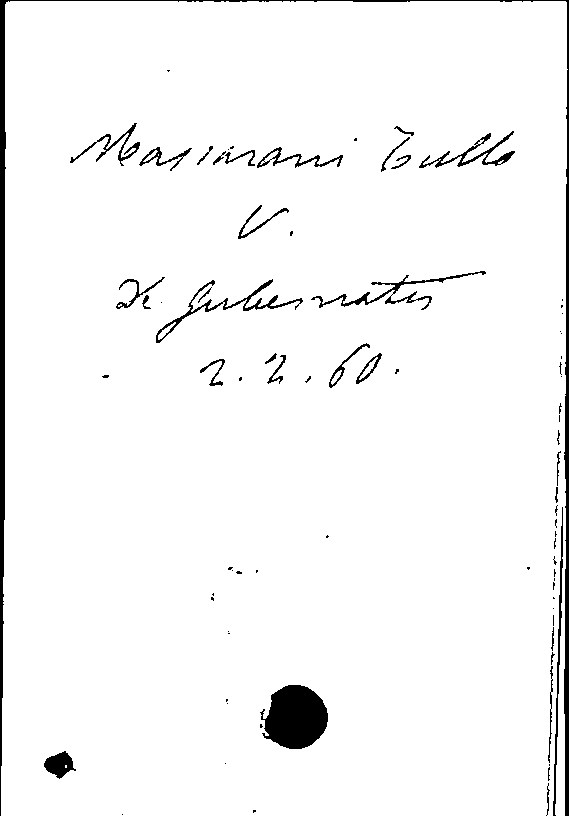 Massarani Tullo
V.
De Gubernatis
2.2.60.